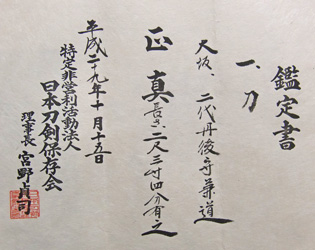 鑑定書
一、刀
大坂、二代丹後守兼道
正真 長さ 二尺三寸四分有之
平成二十九年十月十五日
特定非営利活動法人
日本刀剣保存会
理事長 宮野貞司